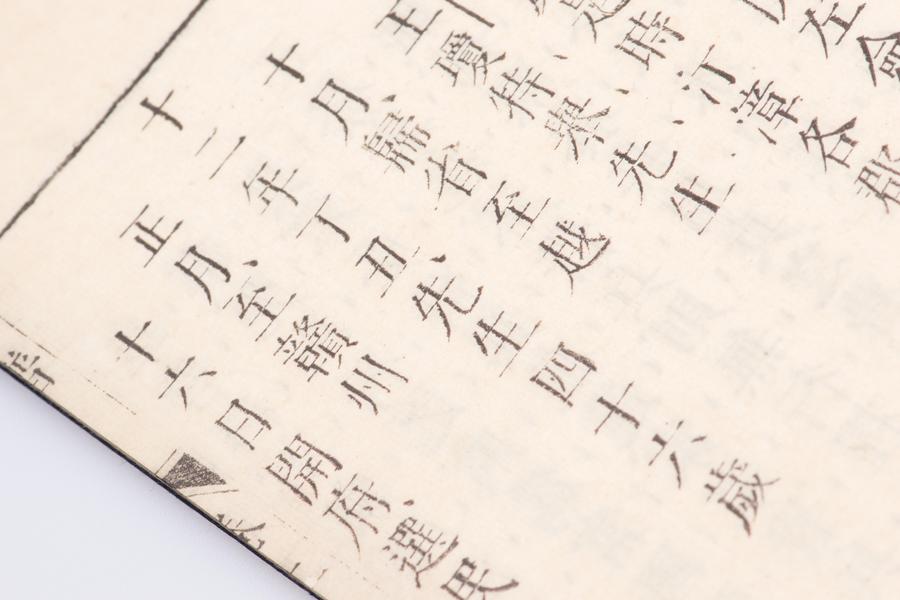 左僉
是時汀漳各郡
王瓊特舉先生
十月、歸省至越
十二年丁丑、先生四十六歲
正月、至贛州
十六日開府、選民